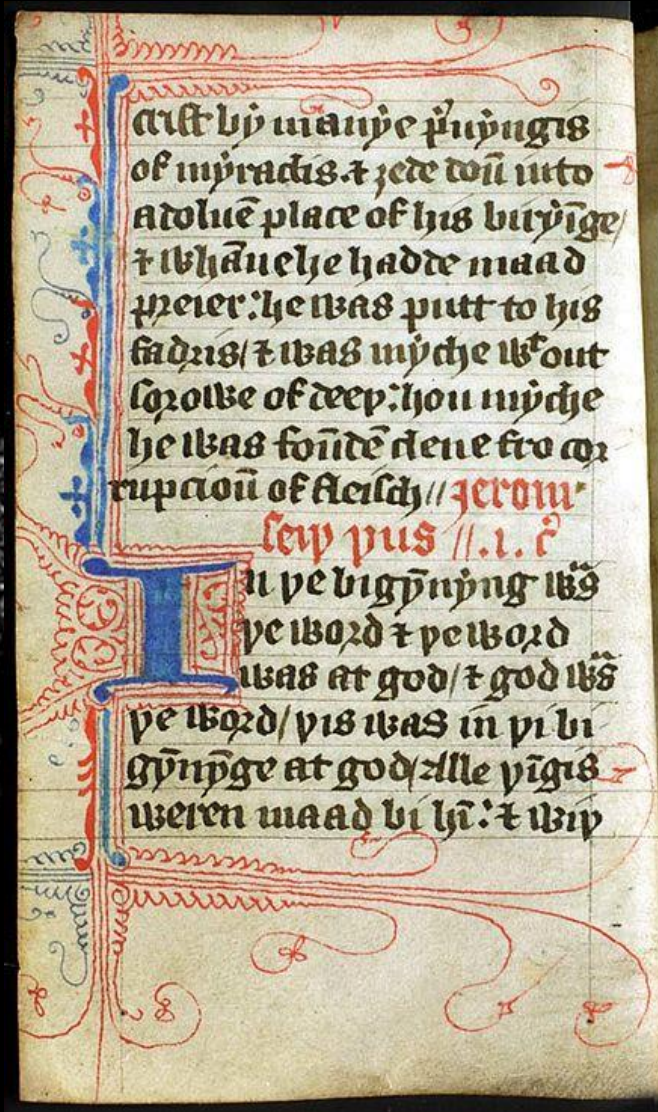 crist bẏ manẏe p̉uẏngis
of mẏraclis .⁊ ȝede doū into
a doluē place of his buryīge/
⁊ whāne he hadde maad
preier : he was putt to his
fadris/ ⁊ was mẏche wᵗ out
sorowe of deeþ : hou mẏche
he was foūdē clene fro cor
rupcioū of fleisch // Jerom
seiþ þus // .i. c̉
In þe bigẏ̄nẏng wᵃs
þe word ⁊ þe word
was at god/ ⁊ god wᵃs
þe word/ þis was in þi bi
gẏ̄nẏ̄ge at god/ Alle þīgis
weren maad bi hī : ⁊ wiþ